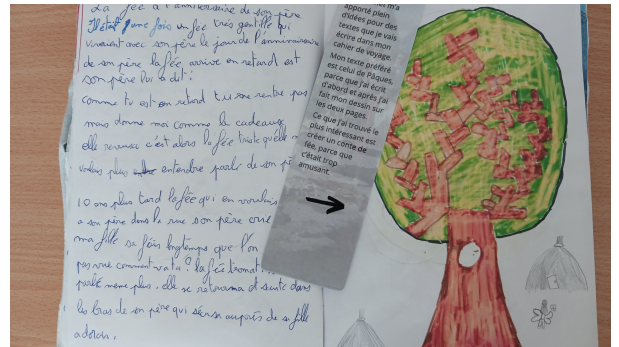 La fée a l'anniversaire de son père
Il était une fois une fée très gentille qui
vivaient avec son père le jour de l'anniversaire
de son père la fée arrive en retard est
son père lui a dit :
comme tu est en retard tu ne rentre pas
mais donne moi comme le cadeaux
elle c'est alors la fée triste qu'elle
voulais plus entendre parler de son pè
10 ans plus tard la fée qui en voulais
a son père dans la rue son père crie
ma fille sa fais longtemps que l'on
pas vue comment va tu ? la fée
parle même plus. elle se retourna et saute dans
les bras de son père qui auprès de sa fille
adorais.
m'a
apporté plein
d'idées pour des
textes que je vais
écrire dans mon
cahier de voyage.
Mon texte préféré
est celui de Pâques,
parce que j'ai écrit
d'abord et après j'ai
fait mon dessin sur
les deux pages.
Ce que j'ai trouvé le
plus intéressant est
créer un conte de
fée, parce que
c'était trop
amusant.